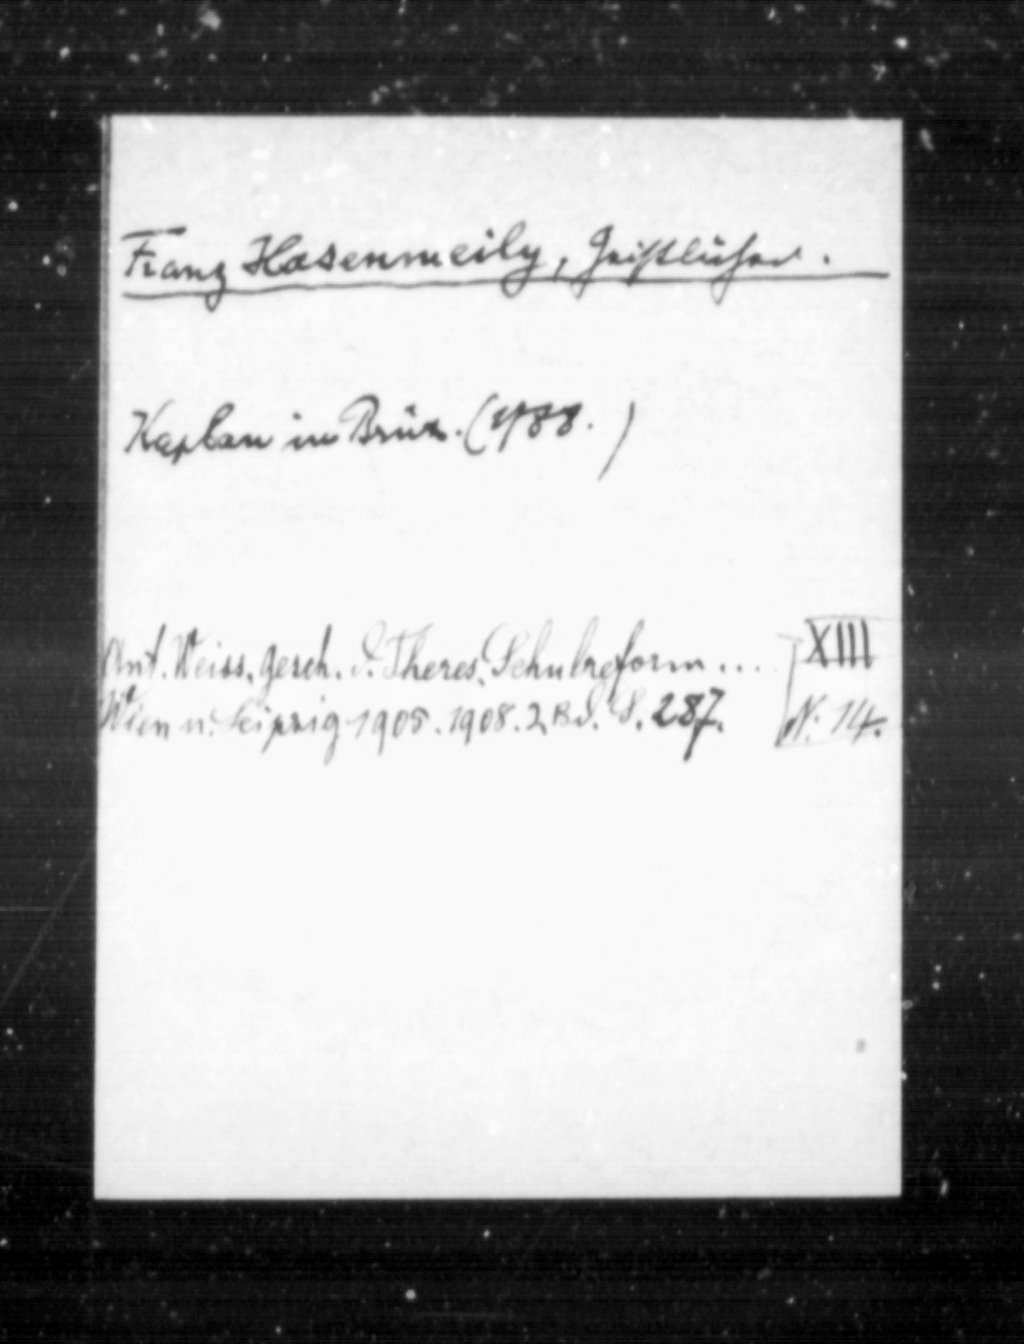 Franz Hasenmeily, Geistlicher.
Kaplan in Brüx. (1788.)
Ant. Weiss, Gesch. d. Theres. Schulreform ... XIII
Wien u. Leipzig 1905. 1908. 2 Bd. S. 287. N. 14.